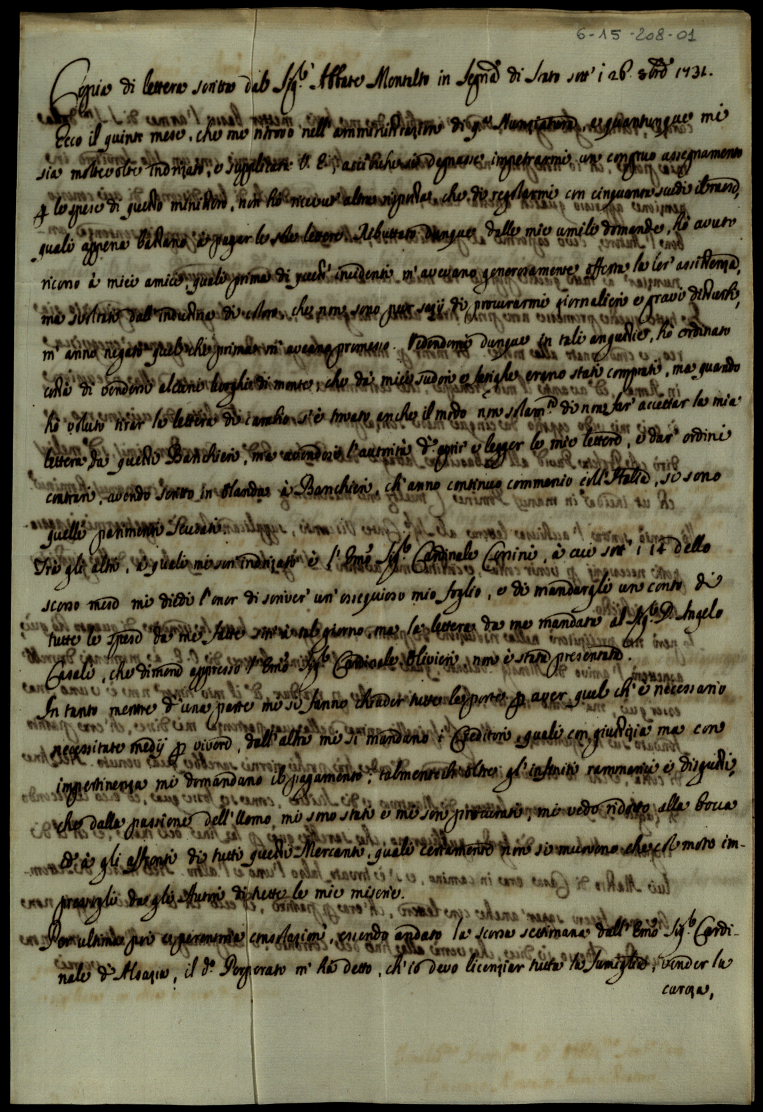 6-15-208-01
Copia di lettera scritta dal Sig.r Abbate Montalto in Segria di Stato sott' i 26. 8bre 1731.
Ecco il quinto mese, che me ritrovo nell' amministrazione di qta Nunziatura, e quantunque mi
sia molte volte indrizato, e supplicato V. E., acciò che si degnasse impetrarmi un congruo assegnamento
p le spese di questo ministero, non hò ricevut' altra risposta, che di regolarmi con cinquanta scudi il mese,
quali appena bastano à pagar le lettere. Ributtato dunque dalle mie umili domande, hò avuto
ricorso à miei amici, quali prima di questi incidenti m' avevano generosamente offerta la lor' assistenza,
ma sviati dall' industria di coloro, che non sono sazij di procurarmi giornalieri e gravi disturbi,
m' anno negato quel che prima m' aveano promesso. Vedendomi dunque in tali angustie, hò ordinato
costà di vendersi alcuni luoghi di monte, che dà miei sudori e fatighe erano stati comprati, ma quando
hò voluto tirar la lettera di cambio s' è trovato anche il modo non solam.te di non far' accettar la mia
lettera da questi Banchieri, ma avendosi l' autorità d' aprir' e legger le mie lettere, e dar' ordini
contrarj, avendo scritto in Olanda à Banchieri, ch' anno continuo commercio coll' Italia, si sono
quelli parimenti scusati.
Trà gli altri, à quali mi son indrizato è l' Emo Sig.r Cardinale Corsini, à cui sott' i 14 dello
scorso mese mi diedi l' onor di scriver' un' ossequioso mio foglio, e di mandargli un conto di
tutte le spese da me fatte sin' à tal giorno, ma la lettera da me mandata al Sig.r D. Angelo
Casali, che dimora appresso l' Emo Sig.r Cardinale Olivieri non è stata presentata.
In tanto mentre d' una parte mi si fanno chiuder tutte le porte p aver quel ch' è necessario
necessitate medij p vivere, dall' altra mi si mandano i Creditori, quali con giustizia ma con
impertinenza mi domandano il pagamento; talmente ch' oltre gl' infiniti rammarici e disgusti,
che dalla passione dell' Uomo, mi sono stati e mi son procurati, mi vedo ridotto alla bocca
ed à gli affronti di tutti questi Mercanti, quali certamente non si muovono che col moto im-
pressogli dagli Autori di tutte le mie miserie.
Per ultima poi e consolazione, essendo andato la scorsa settimana dall' Emo Sig.r Cardi-
nale d' Alsazia, il d.o Porporato m' hà detto, ch' io devo licenziar tutta la famiglia, vender la
caroza,